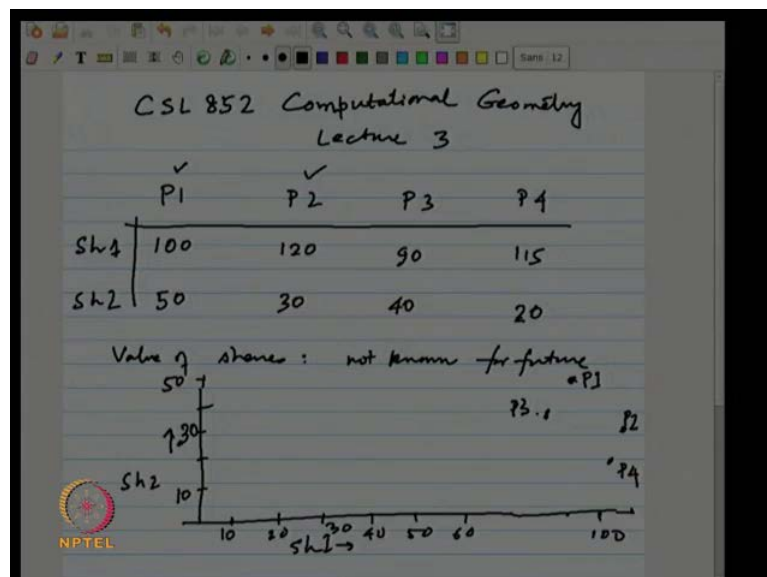 T Sans 12
CSL 852 Computational Geometry
Lecture 3
P1 P2 P3 P4
Sh1 100 120 90 115
Sh2 50 30 40 20
Value of shares : not known for future
50 P1
P3
30 P2
P4
Sh2
10
10 20 30 40 50 60 100
Sh1
NPTEL